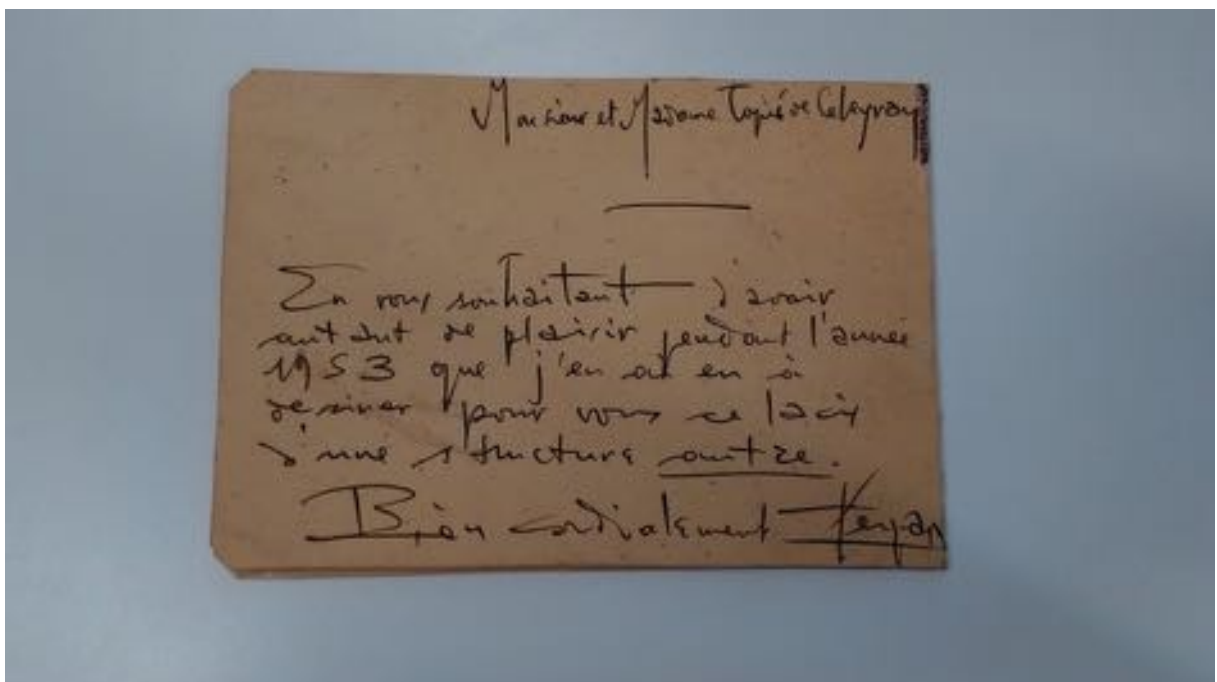 Monsieur et Madame Tapié de Céleyran
En vous souhaitant d'avoir
autant de plaisir pendant l'année
1953 que j'en ai eu à
dessiner pour vous ce lacis
d'une structure autre.
Bien cordialement